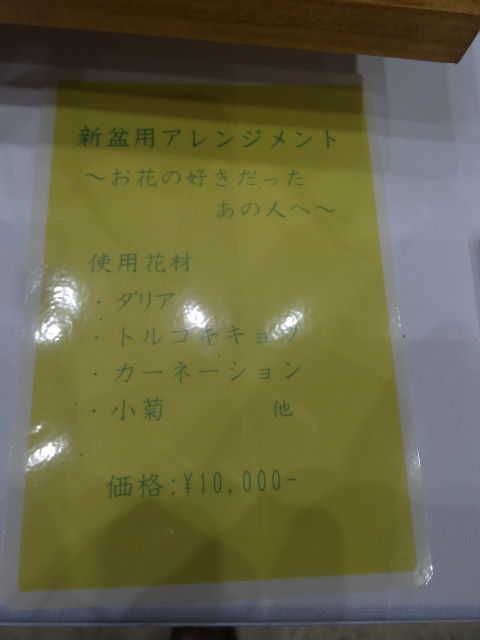 新盆用アレンジメント
～お花の好きだった
あの人へ～
使用花材
・ダリア
・トルコキキョウ
・カーネーション
・小菊 他
価格:¥10,000-